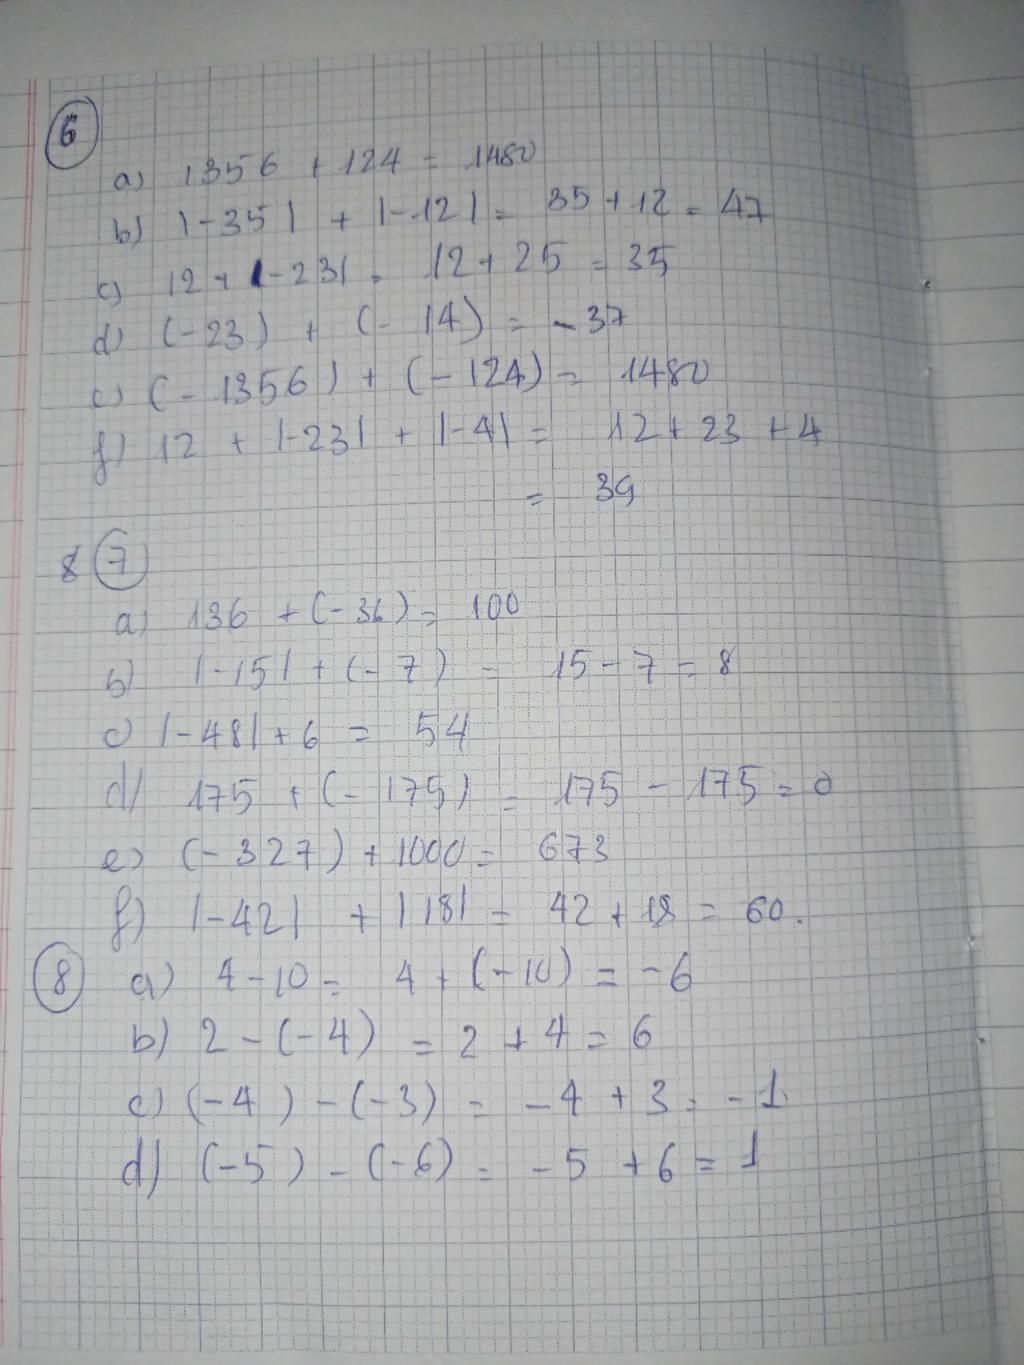 6
a) 1356 + 124 = 1480
b) |-35| + |-12| = 35 + 12 = 47
c) 12 + |-23| = 12 + 25 = 35
d) (-23) + (- 14) = - 37
e) (- 1356) + (- 124) = 1480
f) 12 + |-23| + |-4| = 12 + 23 + 4
= 39
7
a) 136 + (-36) = 100
b) |-15| + (- 7) = 15 - 7 = 8
c) |-48| + 6 = 54
d) 175 + (- 175) = 175 - 175 = 0
e) (- 327) + 1000 = 673
f) |-42| + |18| = 42 + 18 = 60.
8 a) 4 - 10 = 4 + (-10) = -6
b) 2 - (- 4) = 2 + 4 = 6
c) (-4) - (-3) = -4 + 3 = -1
d) (-5) - (-6) = -5 + 6 = 1